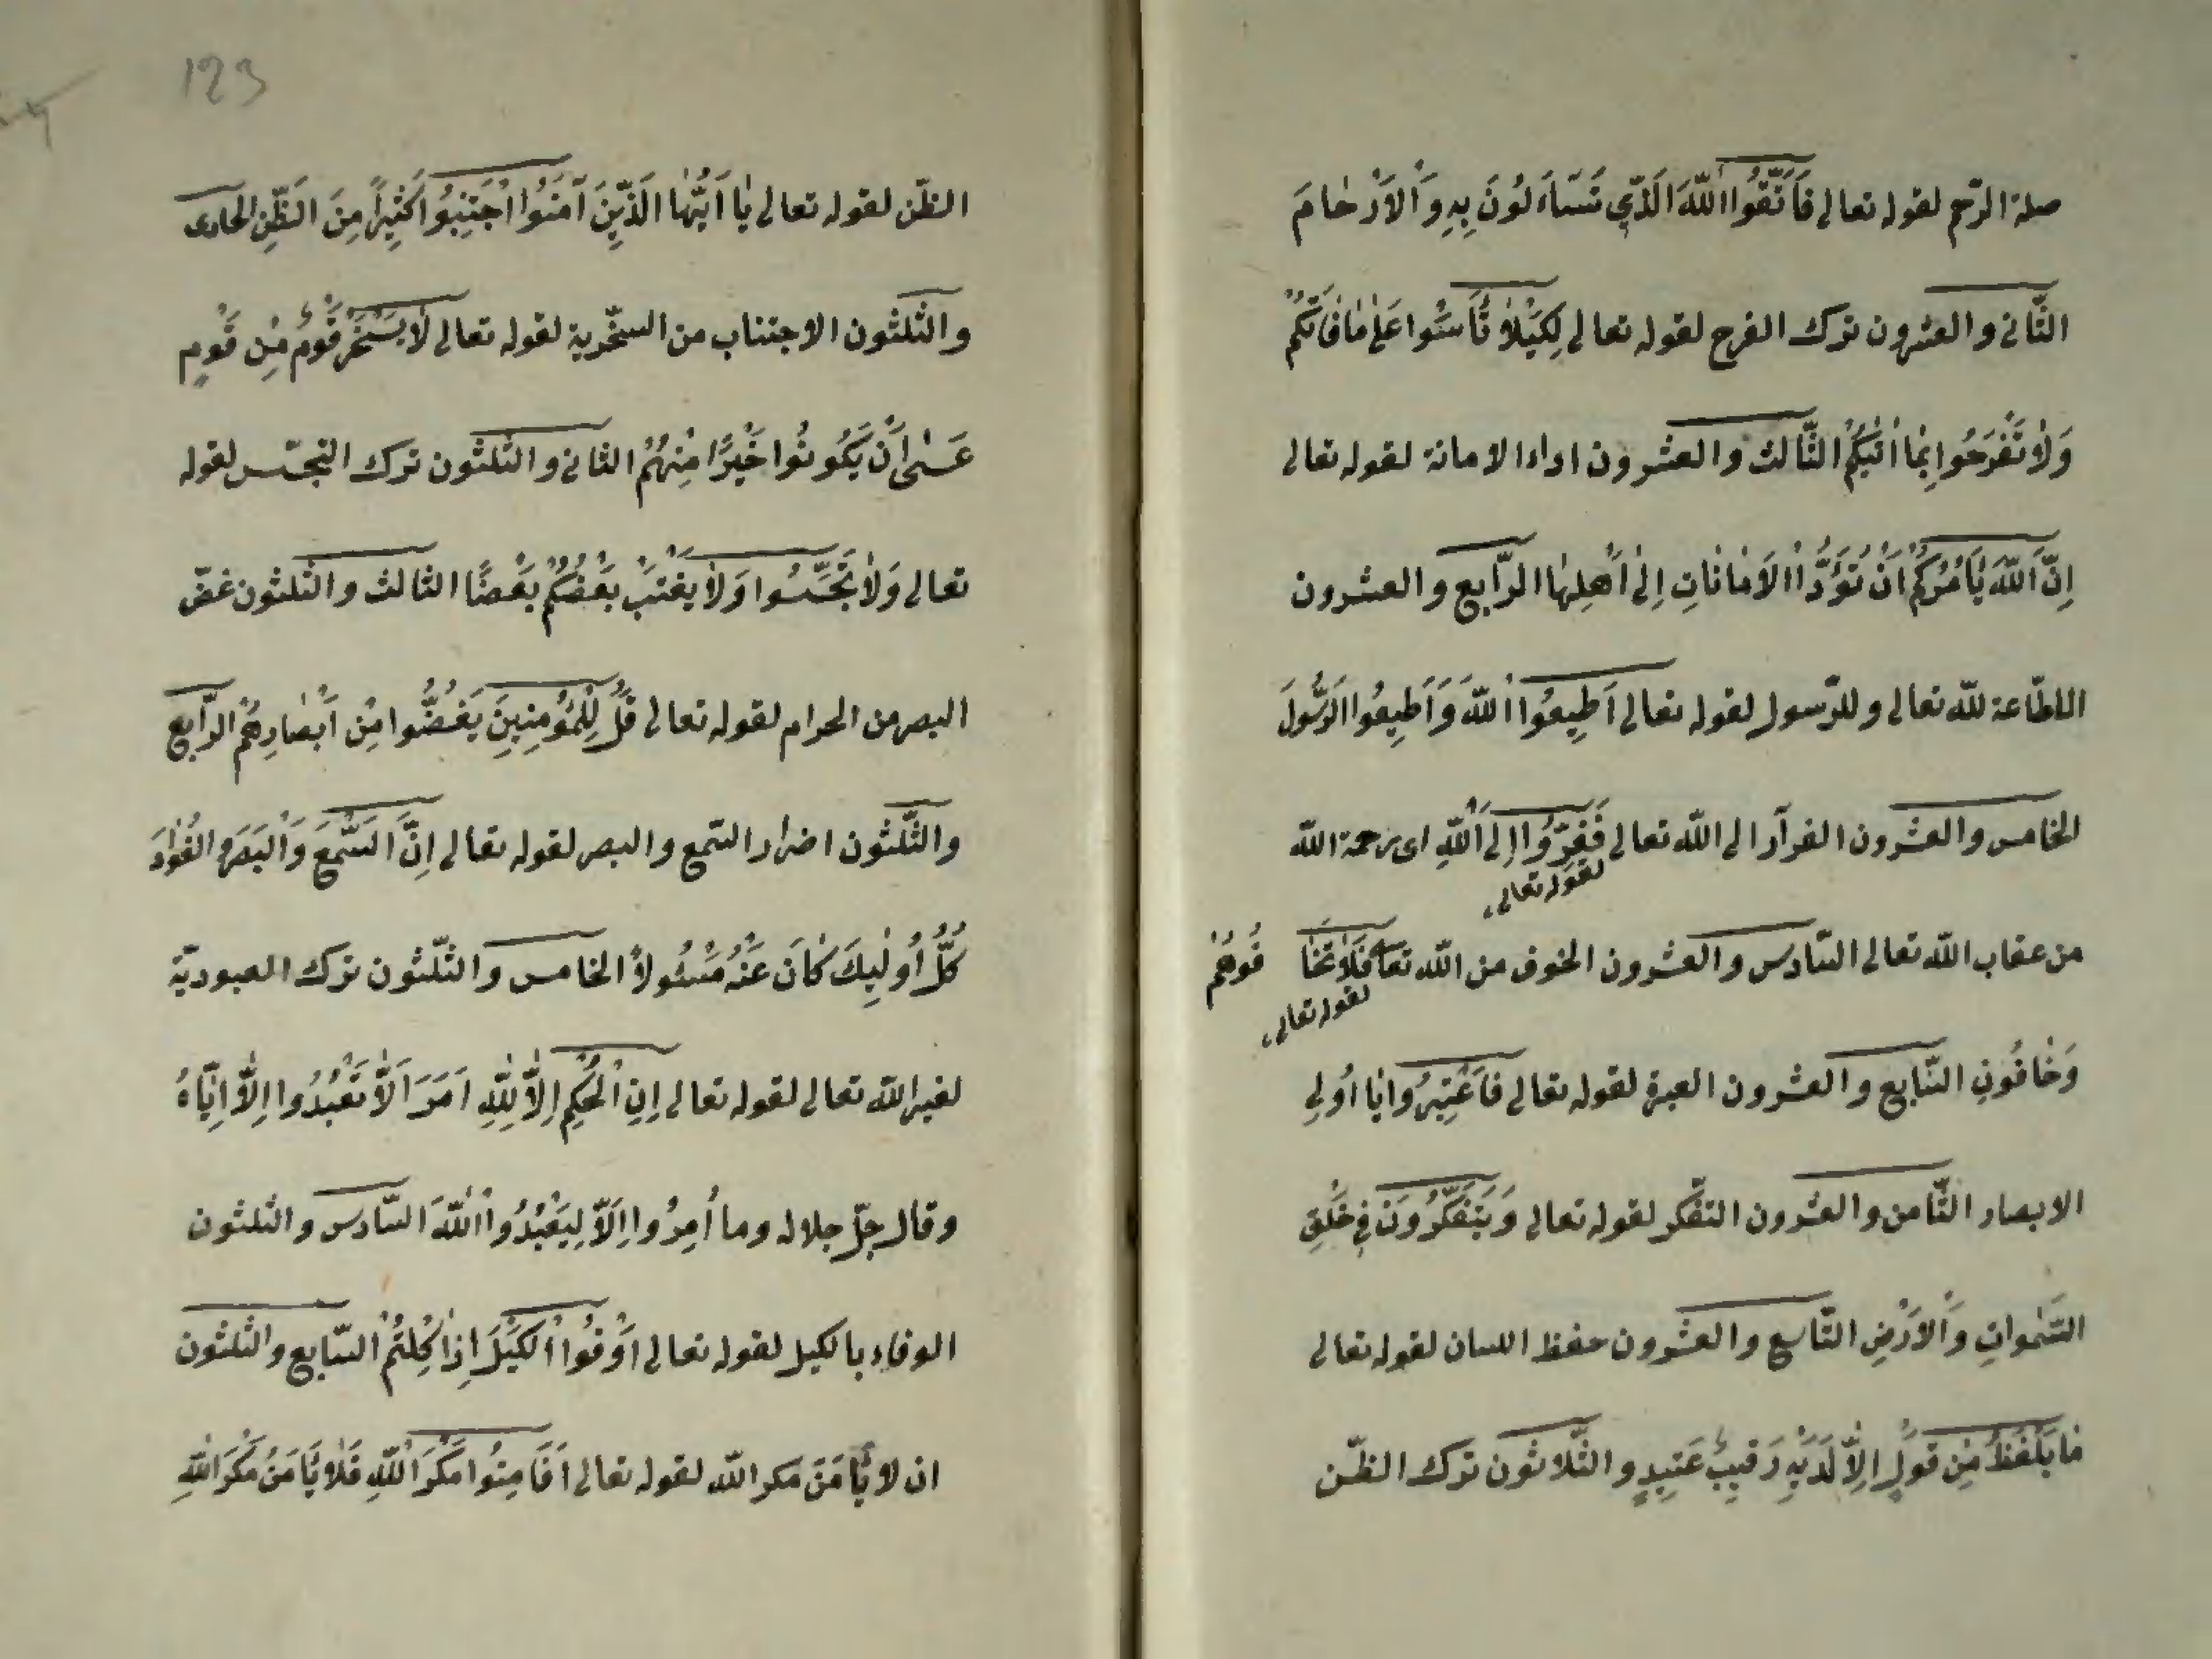 صلة الرّحم لقوله تعالى فَاتَّقُوا اللّٰهَ الَّذِي تَسَاءَلُونَ بِهِ وَالْاَرْحَامَ
الثّانى والعشرون ترك الفرح لقوله تعالى لِكَيْلَا تَأْسَوا عَلٰى مَا فَاتَكُمْ
وَلَا تَفْرَحُوا بِمَا اٰتٰيكُمْ الثّالث والعشرون اداء الامانة لقوله تعالى
اِنَّ اللّٰهَ يَاْمُرُكُمْ اَنْ تُؤَدُّوا الْاَمَانَاتِ اِلٰى اَهْلِهَا الرّابع والعشرون
الاطّاعة للّه تعالى وللرّسول لقوله تعالى اَطِيعُوا اللّٰهَ وَاَطِيعُوا الرَّسُولَ
الخامس والعشرون الفرآر الى اللّه تعالى فَفِرُّوا اِلَى اللّٰهِ اى رحمة اللّه
لقوله تعالى
من عقاب اللّه تعالى السّادس والعشرون الخوف من اللّه تعا فَلَا تَخَافُوهُمْ
لقوله تعالى
وَخَافُونِ السّابع والعشرون العبرة لقوله تعالى فَاعْتَبِرُوا يَا اُولِى
الابصار الثّامن والعشرون التفّكر لقوله تعالى وَيَتَفَكَّرُونَ فِى خَلْقِ
السَّمٰوَاتِ وَالْاَرْضِ التّاسع والعشرون حفظ اللسان لقوله تعالى
مَا يَلْفَظُ مِنْ قَوْلٍ اِلَّا لَدَيْهِ رَقِيبٌ عَتِيدٍ والثّلاثون ترك الظّن
123
الظّن لقوله تعالى يَا اَيُّهَا الَّذِينَ اٰمَنُوا اجْتَنِبُوا كَثِيرًا مِنَ الظَّنِّ الحادى
والثّلثون الاجتناب من السخّرية لقوله تعالى لَا يَسْخَرْ قَوْمٌ مِنْ قَوْمٍ
عَسٰى اَنْ يَكُونُوا خَيْرًا مِنْهُمْ الثانى والثّلثون ترك التجسّس لقوله
تعالى وَلَا تَجَسَّسُوا وَلَا يَغْتَبْ بَعْضُكُمْ بَعْضًا الثالث والثلثون غضّ
البصر من الحرام لقوله تعالى قُلْ لِلْمُؤْمِنِينَ يَغُضُّوا مِنْ اَبْصَارِهِمْ الرّابع
والثّلثون اضرار السّمع والبصر لقوله تعالى اِنَّ السَّمْعَ وَالْبَصَرَ وَالْفُؤَادَ
كُلُّ اُولٰئِكَ كَانَ عَنْهُ مَسْئُولًا الخامس والثّلثون ترك العبوديّة
لغير اللّه تعالى لقوله تعالى اِنِ الْحُكْمِ اِلَّا لِلّٰهِ اَمَرَ اَلَّا تَعْبُدُوا اِلَّا اِيَّاهُ
وقال جلّ جلاله وما اُمِرُوا اِلَّا لِيَعْبُدُوا اللّٰهَ السّادس والثلثون
الوفاء بالكيل لقوله تعالى اَوْفُوا الْكَيْلَ اِذَا كِلْتُمْ السّابع والثّلثون
ان لا يَأْمَنَ مكر اللّه لقوله تعالى اَفَاَمِنُوا مَكْرَ اللّٰهِ فَلَا يَاْمَنُ مَكْرَ اللّٰهِ